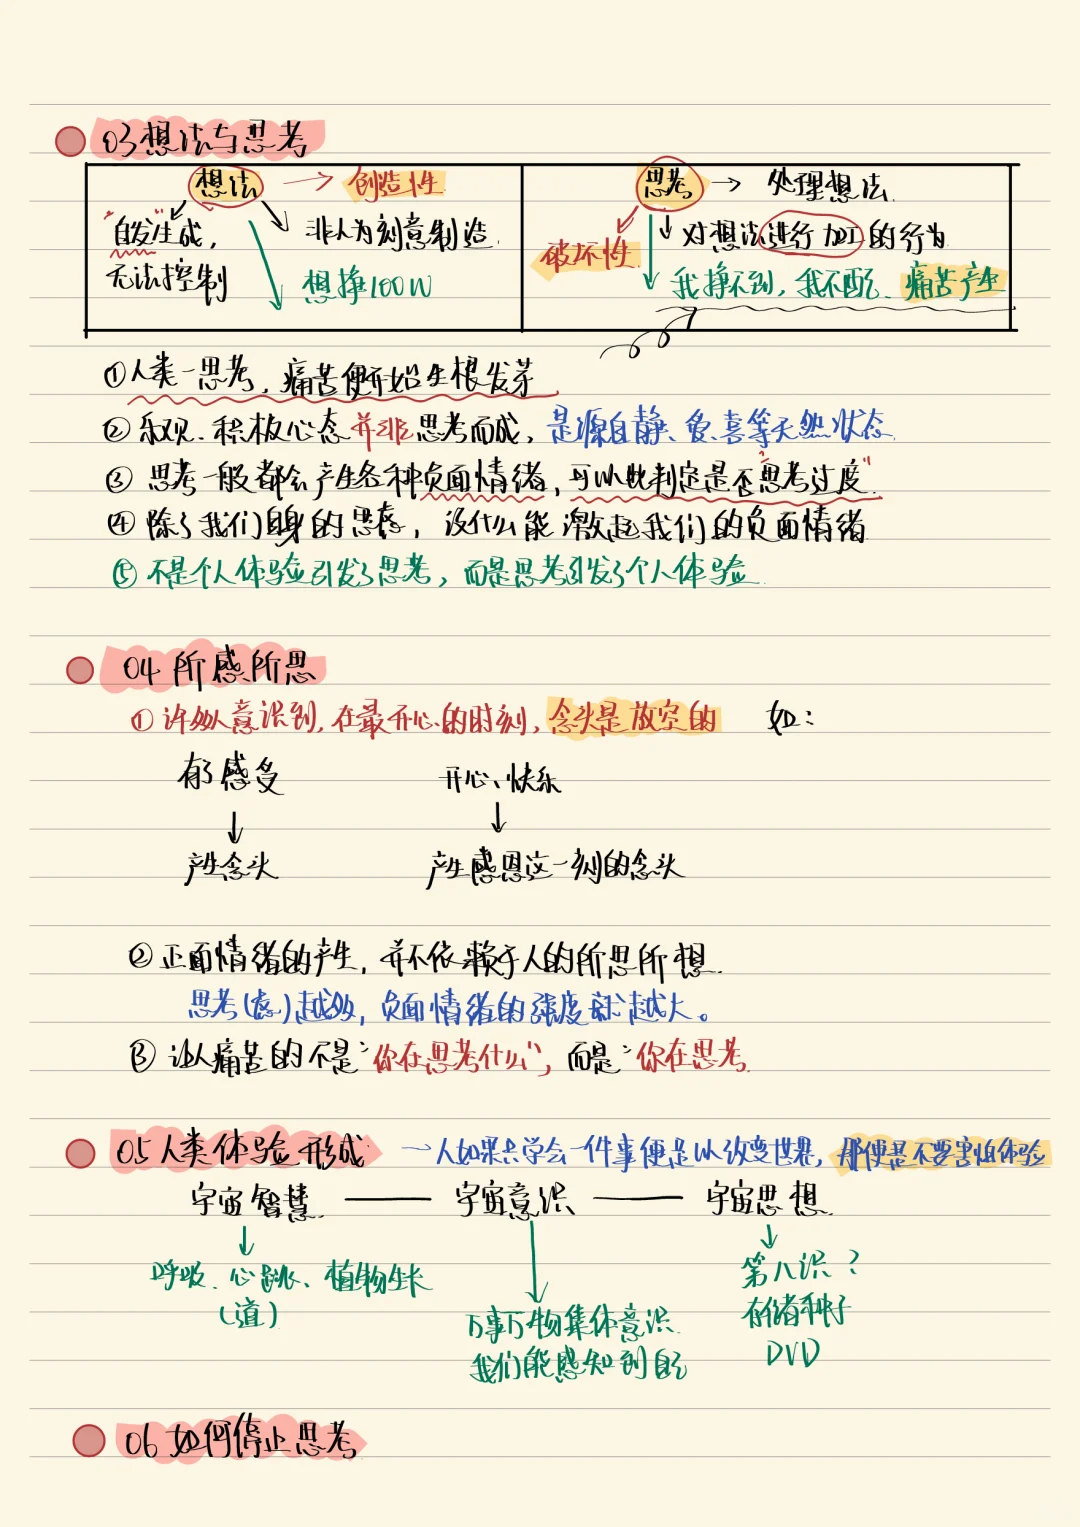 03 想法与思考
想法 → 创造性
"自发"生成,
无法控制
非人为刻意制造.
想挣100W
思考 → 处理想法.
破坏性.
对想法进行加工的行为
我挣不到, 我不配、痛苦产生
①人类一思考, 痛苦便开始生根发芽
②乐观、积极心态并非思考而成, 是源自静、爱、喜等天然状态.
③ 思考一般都会产生各种负面情绪, 可以此判定是否"思考过度".
④ 除了我们自身的思虑, 没什么能激起我们的负面情绪
⑤ 不是个人体验引发了思考, 而是思考引发了个人体验.
04 所感所思
① 许多人意识到, 在最开心的时刻, 念头是放空的 如:
有了感受 开心、快乐
↓ ↓
产生念头 产生感恩这一刻的念头
② 正面情绪的产生, 并不依赖于人的所思所想.
思考(虑)越多, 负面情绪的强度就越大。
③ 让人痛苦的不是"你在思考什么", 而是"你在思考.
05 人类体验形成 一人如果只学会一件事便足以改变世界, 那便是不要害怕体验
宇宙智慧 —— 宇宙意识 —— 宇宙思想.
呼吸、心跳、植物生长
(道)
万事万物集体意识.
我们能感知到自己
第八识?
存储种子
DVD
06 如何停止思考